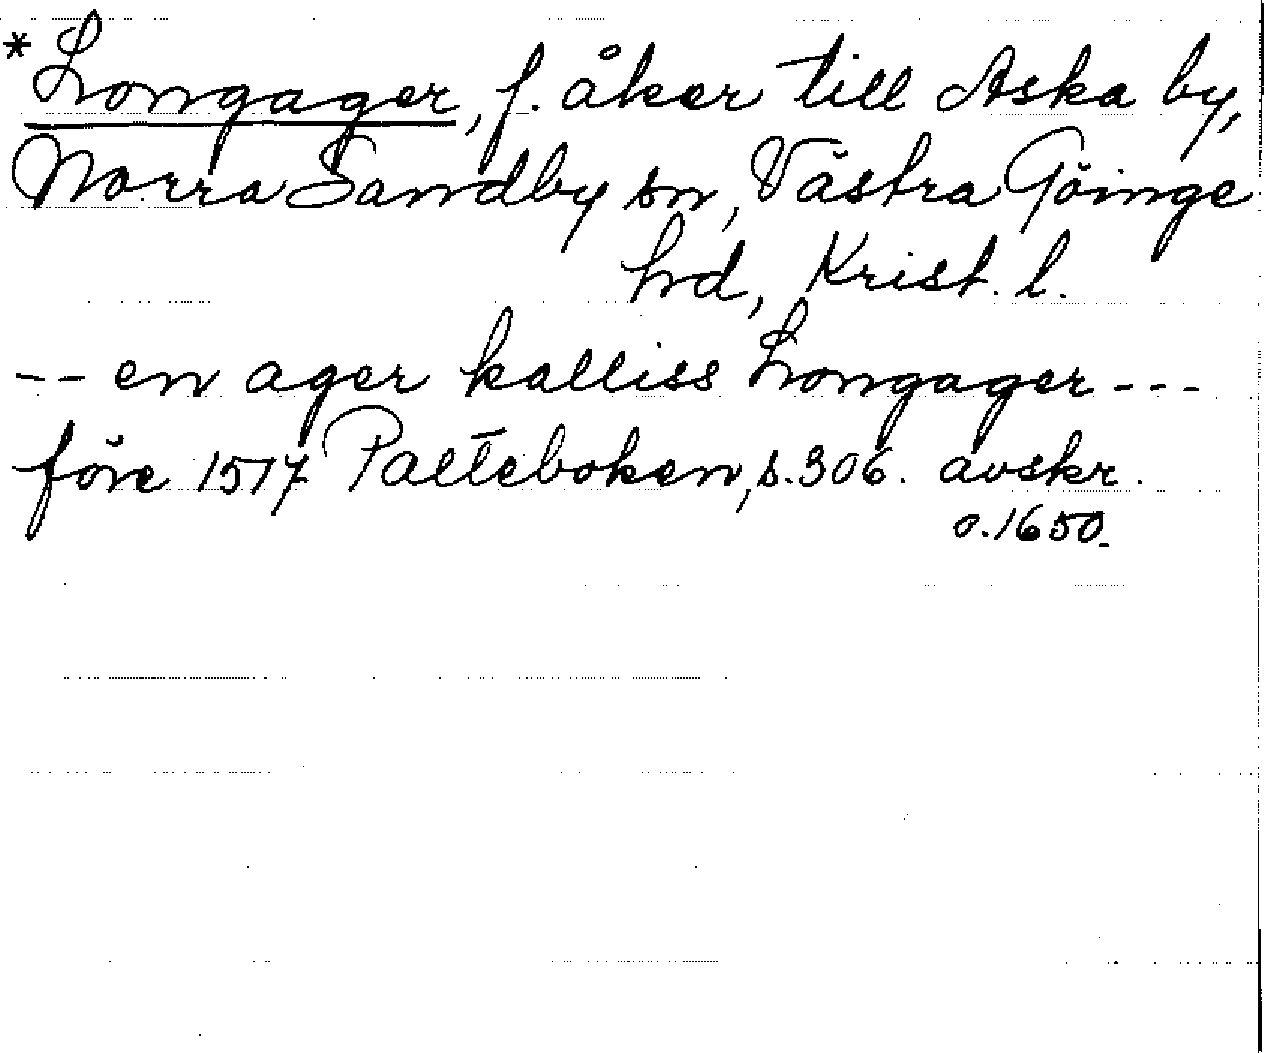 *Longager, f. åker till Aska by,
Norra Sandby sn, Västra Göinge
hd, Krist. l.
-- en ager kalliss Longager ---
före 1517 Palteboken, s. 306. avskr.
o. 1650.